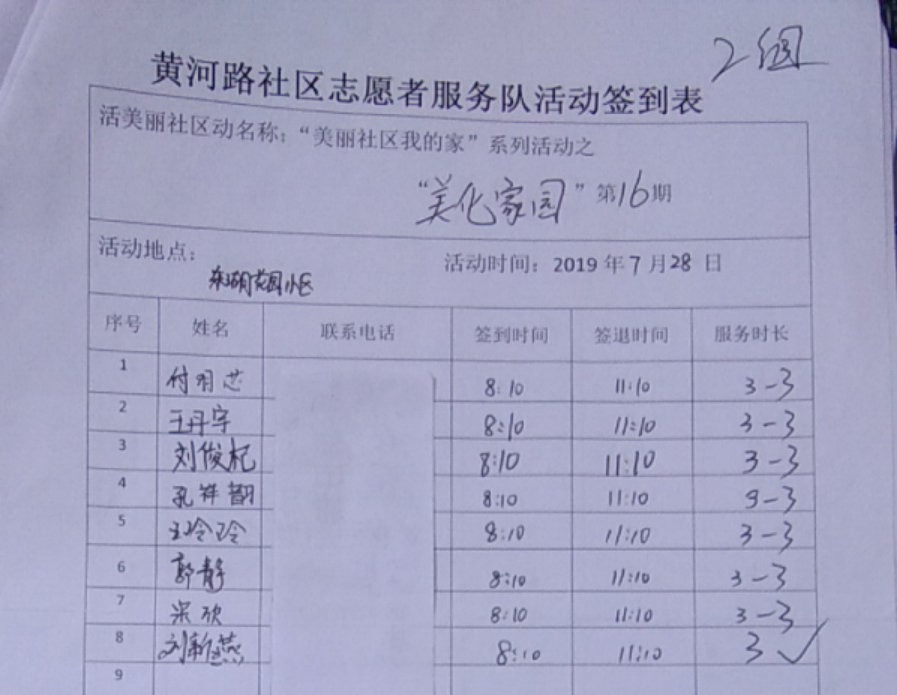 2组
黄河路社区志愿者服务队活动签到表
活美丽社区动名称：“美丽社区我的家”系列活动之
“美化家园”第16期
活动地点： 活动时间：2019年7月28日
东湖花园小区
序号 姓名 联系电话 签到时间 签退时间 服务时长
1 付明芯 8:10 11:10 3-3
2 王丹宇 8:10 11:10 3-3
3 刘俊杞 8:10 11:10 3-3
4 孔祥 8:10 11:10 3-3
5 王玲玲 8:10 11:10 3-3
6 郭静 8:10 11:10 3-3
7 宋欣 8:10 11:10 3-3
8 刘新燕 8:10 11:10 3✓
9